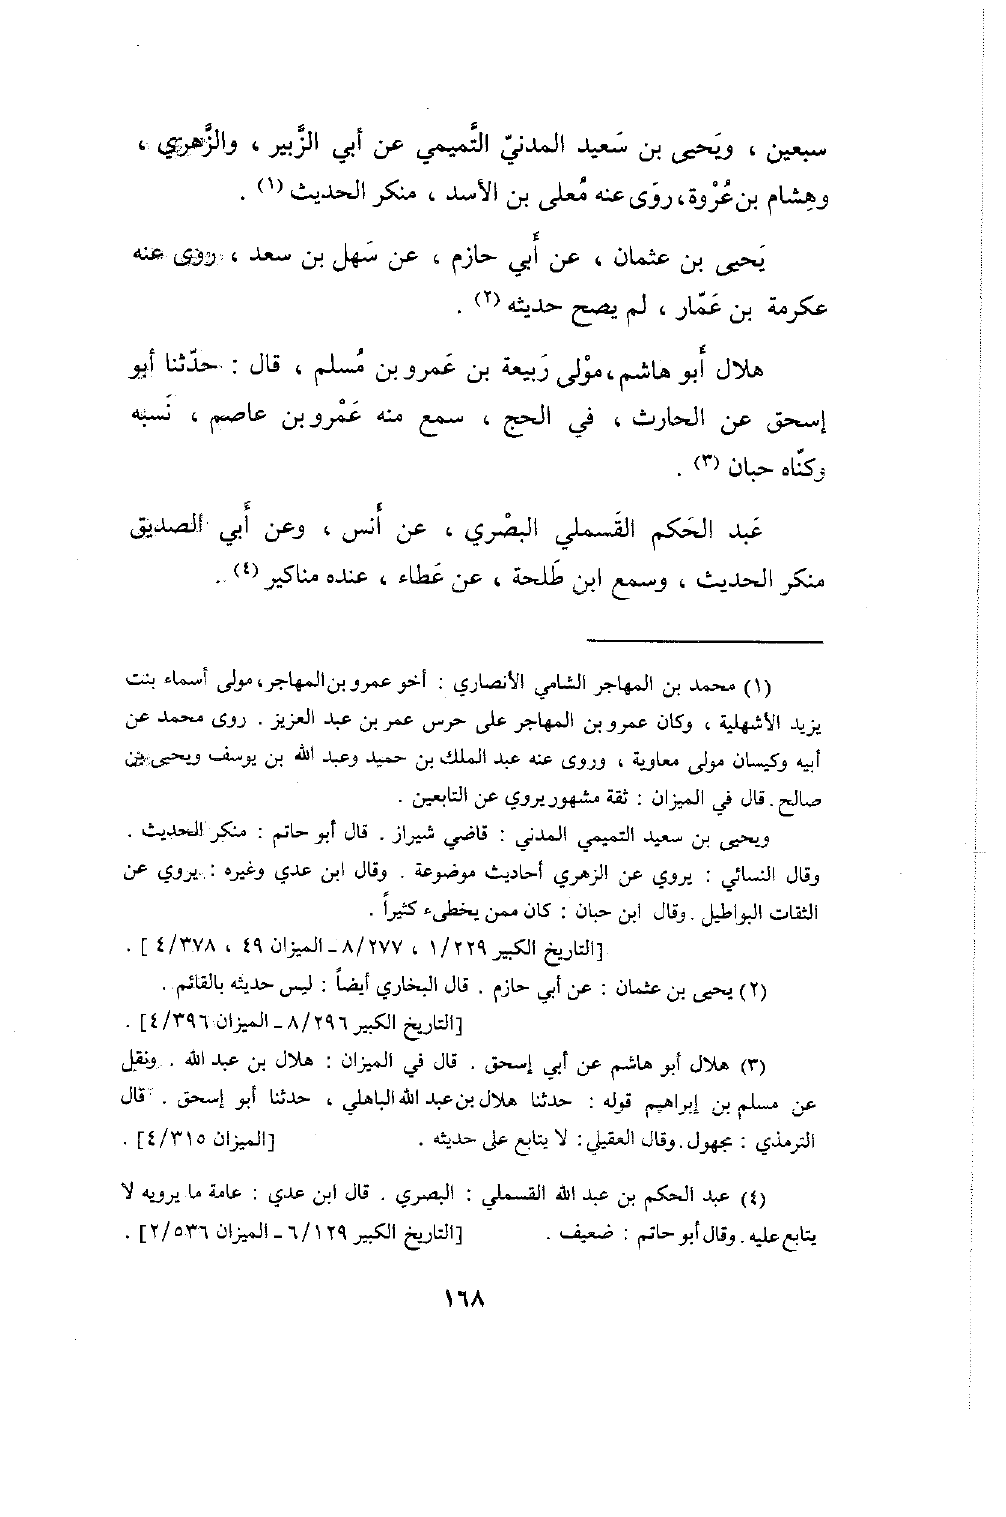 سبعين ، ويَحيى بن سَعيد المدنيّ التَّميمي عن أبي الزَّبير ، والزَّهري ،
وهِشام بن عُرْوة ، روَى عنه مُعلى بن الأسد ، منكر الحديث (١) .
يَحيى بن عثمان ، عن أَبي حازم ، عن سَهل بن سعد ، روى عنه
عكرمة بن عَمّار ، لم يصح حديثه (٢) .
هلال أَبو هاشم ، موْلى رَبيعة بن عَمرو بن مُسلم ، قال : حدّثنا أبو
إسحق عن الحارث ، في الحج ، سمع منه عَمْرو بن عاصم ، نَسبه
وكنّاه حبان (٣) .
عَبد الحَكم القَسملي البصْري ، عن أَنس ، وعن أَبي الصديق
منكر الحديث ، وسمع ابن طَلحة ، عن عَطاء ، عنده مناكير (٤) .
(١) محمد بن المهاجر الشامي الأنصاري : أخو عمرو بن المهاجر ، مولى أسماء بنت
يزيد الأشهلية ، وكان عمرو بن المهاجر على حرس عمر بن عبد العزيز . روى محمد عن
أبيه وكيسان مولى معاوية ، وروى عنه عبد الملك بن حميد وعبد الله بن يوسف ويحيى بن
صالح . قال في الميزان : ثقة مشهور يروي عن التابعين .
ويحيى بن سعيد التميمي المدني : قاضي شيراز . قال أبو حاتم : منكر الحديث .
وقال النسائي : يروي عن الزهري أحاديث موضوعة . وقال ابن عدي وغيره : يروي عن
الثقات البواطيل . وقال ابن حبان : كان ممن يخطىء كثيراً .
[التاريخ الكبير ١/٢٢٩ ، ٨/٢٧٧ ـ الميزان ٤٩ ، ٤/٣٧٨ ] .
(٢) يحيى بن عثمان : عن أبي حازم . قال البخاري أيضاً : ليس حديثه بالقائم .
[التاريخ الكبير ٨/٢٩٦ ـ الميزان ٤/٣٩٦] .
(٣) هلال أبو هاشم عن أبي إسحق . قال في الميزان : هلال بن عبد الله . ونقل
عن مسلم بن إبراهيم قوله : حدثنا هلال بن عبد الله الباهلي ، حدثنا أبو إسحق . قال
الترمذي : مجهول . وقال العقيلي : لا يتابع على حديثه . [الميزان ٤/٣١٥] .
(٤) عبد الحكم بن عبد الله القسملي : البصري . قال ابن عدي : عامة ما يرويه لا
يتابع عليه . وقال أبو حاتم : ضعيف . [التاريخ الكبير ٦/١٢٩ ـ الميزان ٢/٥٣٦] .
١٦٨